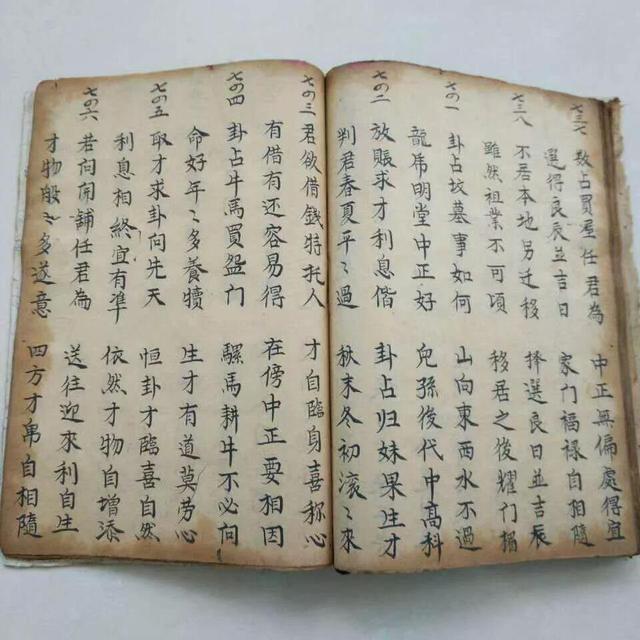 七三七
数占買產任君為 中正無偏處得宜
選得良辰並吉日 家门福禄自相隨
七三八
不居本地另迁移 择選良日並吉辰
雖然祖業不可頃 移居之後耀门楣
七の一
卦占坟墓事如何 山向東西水不過
龍虎明堂中正好 兒孫後代中高科
七の二
放賬求才利息偕 卦占归妹果生才
判君春夏平〻過 秋末冬初滚〻來
七の三
君欲借錢特托人 才自臨身喜称心
有借有还容易得 在傍中正要相因
七の四
卦占牛馬買盈门 騾馬耕牛不必问
命好年〻多養犢 生才有道莫劳心
七の五
取才求卦向先天 恒卦才臨喜自然
利息相終宜有準 依然才物自增添
七の六
若向開铺任君為 送往迎來利自生
才物般〻多遂意 四方才帛自相隨